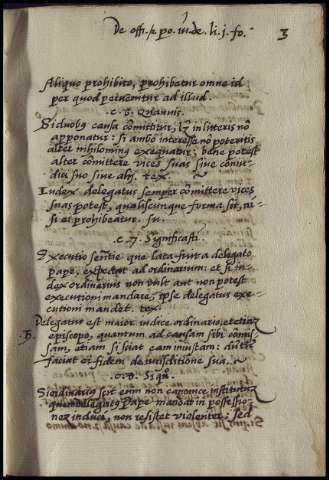 De offi. &
3
Aliquo prohibito, prohibetur omne id
per quod pervenitur ad illud.
c. 6. Quamvis.
Si duobus causa committitur, in litteris non
apponatur: si ambo interesse no poteritis
alter nihilominus exequatur; bene potest
alter committere vices suas sive
sive absq. tex.
Iudex delegatus semper committere vices
suas potest, qualiscunque forma sit, ni-
si et prohibeatur.
c. 7. Significasti
Executio sentie que lata fuit a delegato
Pape, expectat ad ordinarium: et si iu-
dex ordinarius non vult aut non potest
executioni mandare, ipse delegatus exe-
cutioni mandet. tex.
Delegatus est maior iudice ordinario, etiam
episcopo, quantum ad causam sibi comis-
sam, etiam si sciat eam iniustam:
faciat ei fidem de iurisditione sua.
c. 8.
Si ordinarius scit eum non canonice institutum
quem delegatus Pape mandat in possessio-
nez induci, non resistet violenter; sed